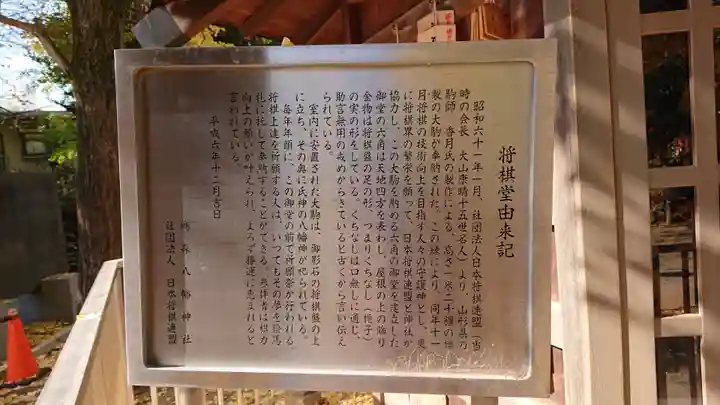 将棋堂由来記
昭和六十一年一月、社団法人日本将棋連盟(当
時の会長 大山康晴十五世名人)より 山形県の
駒師 香月氏の製作による、高さ一米二十糎の欅
製の大駒が奉納された。この縁により、同年十一
月将棋の技術向上を目指す人々の守護神とし、更
に将棋界の繁栄を願って、日本将棋連盟と神社が
協力し、この大駒を納める六角の御堂を建立した
御堂の六角は天地四方を表わし、屋根の上の飾り
金物は将棋盤の足の形、つまりくちなし(梔子)
の実の形をしている。くちなしは口無しに通じ、
助言無用の戒めからきていると古くから言い伝え
られている。
室内に安置された大駒は、御影石の将棋盤の上
に立ち、その奥に氏神の八幡神が祀られている。
毎年年頭に、この御堂の前で祈願祭が行われる
将棋上達を祈願する人は、いつでもその夢を絵馬
札に托して奉納することができる。参拝者は棋力
向上の願いが叶えられ、よろず勝運に恵まれると
言われている。
平成六年十二月吉日
鳩森八幡神社
社団法人 日本将棋連盟